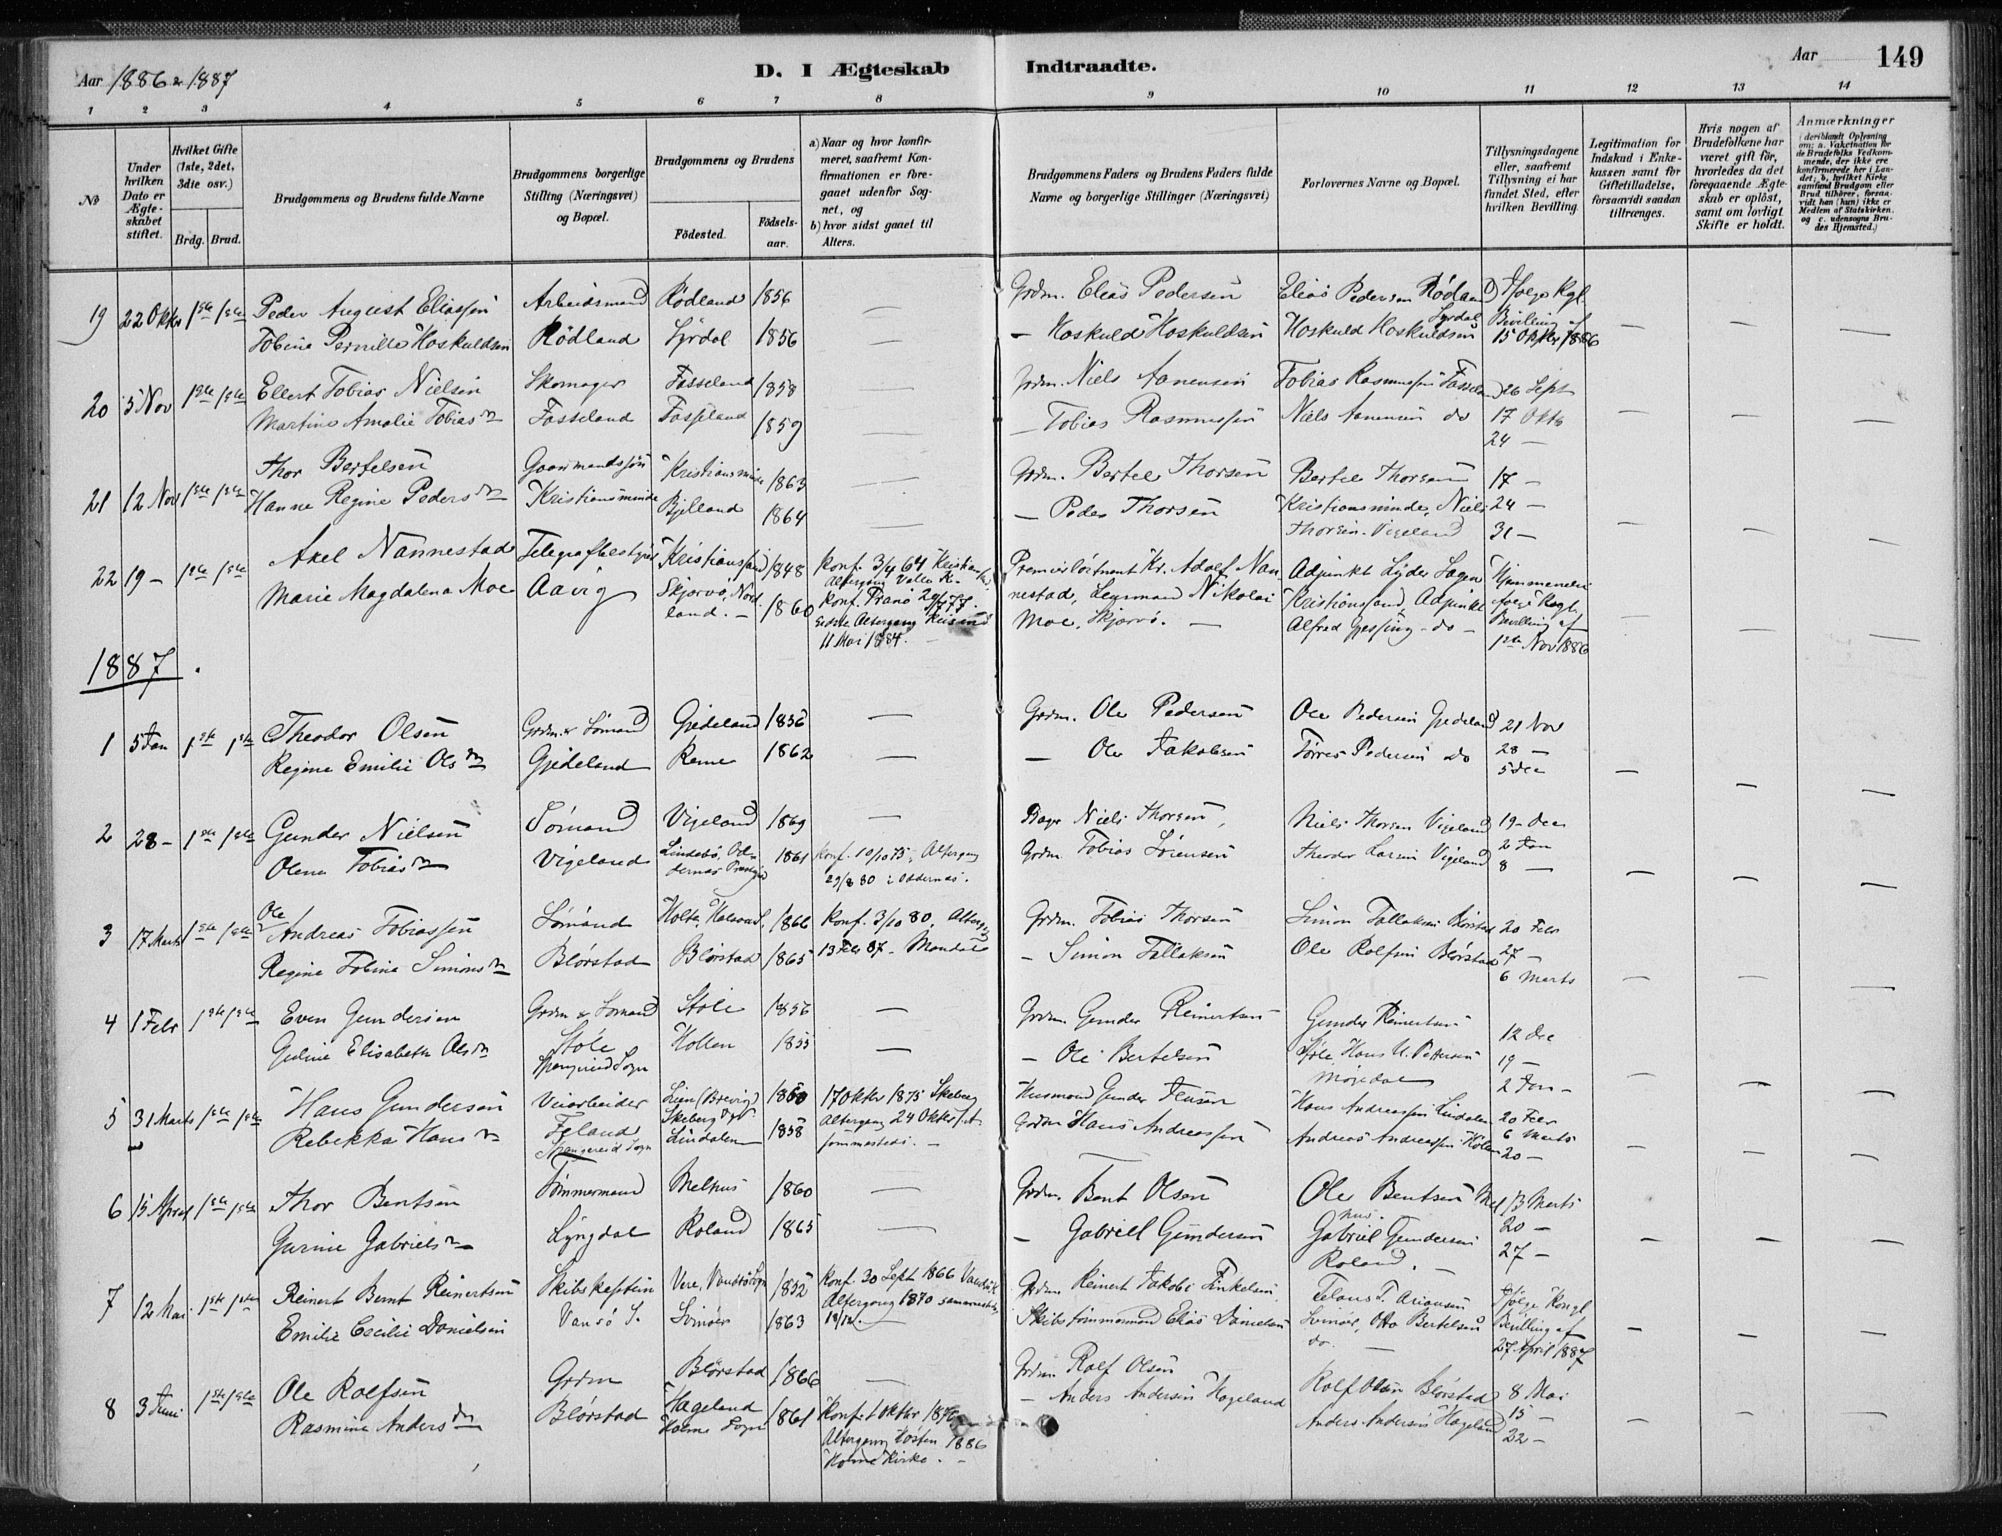 Aar 1886 & 1887
D. I Ægteskab Indtraadte.
Aar
149
1 2 3 4 5 6 7 8 9 10 11 12 13 14
No
Under hvilken Dato er Ægteskabet stiftet.
Hvilket Gifte (1ste, 2det, 3die osv.)
Brdg. Brud.
Brudgommens og Brudens fulde Navne
Brudgommens borgerlige Stilling (Næringsvei) og Bopæl.
Brudgommens og Brudens
Födested.
Födselsaar.
a) Naar og hvor konfirmeret, saafremt Konfirmationen er foregaaet udenför Sognet, og
b) hvor sidst gaaet til Alters.
Brudgommens Faders og Brudens Faders fulde Navne og borgerlige Stillinger (Næringsvei)
Forlovernes Navne og Bopæl.
Tillysningsdagene eller, saafremt Tillysning ei har fundet Sted, efter hvilken Bevilling.
Legitimation for Indskud i Enkekassen samt for Giftetilladelse, forsaavidt saadan tiltrænges.
Hvis nogen af Brudefolkene har været gift för, hvorledes da det foregaaende Ægteskab er oplöst, samt om lovligt Skifte er holdt.
Anmærkninger (deriblandt Oplysning om: a. Vakcination for de Brudefolks Vedkommende, der ikke ere konfirmerede her i Landet; b, hvilket Kirkesamfund Brudgom eller Brud tilhörer, forsaavidt han (hun) ikke er Medlem af Statskirken, og c. udensogns Brudes Hjemsted.)
19 22 Oktr 1ste 1ste Peder August Eliassen Arbeidsmand Rödland 1856 — Grdm. Elias Pedersen Elias Pedersen Rödland Ifølge Kgl.
Tobine Pernille Hoskuldsen Rödland Lyrdal 1856 — — Hoskuld Hoskuldsen Hoskuld Hoskuldsen Lyrdal Bevilling af 15 Oktbr 1886 — — —
20 5 Nov 1ste 1ste Ellert Tobias Nielsen Skomager Fasseland 1858 — Grdm. Niels Aanensen Tobias Rasmussen 26 Sept
Martine Amalie Tobiasdn Fasseland Fasseland 1859 — — Tobias Rasmussen Niels Aanensen do 17 Oktb — — —
24 —
21 12 Nov 1ste 1ste Thor Bertelsen Gaardmandssön Kristiansminde 1863 — Grdm. Bertel Thorsen Bertel Thorsen 17 —
Hanne Regine Pedersdn Kristiansminde Bjelland 1864 — — Peder Thorsen Kristiansminde, Niels 24 —
Thorsen Vigeland 31 — — — —
22 19 — 1ste 1ste Axel Nannestad Telegrafbestyrer Kristiansand 1848 Konf. 3/4 64 Premierløitnant Kr. Adolf Nan- Adjunkt Lyder Sagen
Marie Magdalena Moe Aavig Skjervö, Nord- 1860 Altergang Valle K. nestad, Lensmand Nikolai Kristiansand, Adjunkt ifølge Kgl.
land. — Konf. Tranö Moe, Skjervö. — Alfred Gjessing do — Bevilling af
Sidste Altergang 11 Mai 1884. — 1ste Nov 1886 — — —
1887.
1 5 Jan 1ste 1ste Theodor Olsen Grdm. & Sömand Gjideland 1856 — Grdm. Ole Pedersen Ole Pedersen Gjideland 21 Nov
Regine Emilie Olsdn Gjideland Reme 1862 — — Ole Jakobsen Tørres Pedersen do 28 —
5 Dec — — —
2 28 — 1ste 1ste Gunder Nielsen Sömand Vigeland 1869 — Niels Thorsen Niels Thorsen Vigeland 19 Dec
Olene Tobiasdn Vigeland Lindebö, Od- 1861 Konf. 10/10 75, Altergang Grdm. Tobias Sörensen Theodor Larsen Vigeland 2 Jan
dernes Præstegj. 29/8 80 i Oddernes. 8 — — — —
3 17 Marts 1ste 1ste Ole Andreas Tobiassen Sömand Holte, Halsaa S. 1866 Konf. 3/10 80, Altergang Grdm. Tobias Thorsen Simon Tallaksen Blörstad 20 Febr
Regine Tobine Simonsdn Blörstad Blörstad 1865 13 Febr 87 — Mandal — Simon Tallaksen Ole Rolfsen Blörstad 27 —
6 Marts — — —
4 1 Febr 1ste 1ste Even Gundersen Grdm & Sömand Stöle 1856 — Grdm. Gunder Reinertsen Gunder Reinertsen 12 Dec
Guline Elisabeth Olsdn Stöle Holten 1855 — — Ole Bertelsen Stöle Hans N. Pettersen 19 —
Spangereid Sogn 2 Jan — — — —
5 31 Marts 1ste 1ste Hans Gundersen Veiarbeider Lien (Brevig) 1850 17 Oktbr 1875 Skeberg Husmand Gunder Jensen Hans Andreassen Lindalen 20 Febr
Rebekka Hansdn Feland Skeberg 1858 Altergang 24 Oktbr Grdm Hans Andreassen Andreas Andreassen 6 Marts
Spangereid Sogn Lindalen sammesteds. — 20 — — — —
6 15 April 1ste 1ste Thor Bentsen Tömmermand Melhus 1860 — Grdm. Bent Olsen Ole Bentsen Mel- 13 Marts
Gurine Gabrielsdn Lyngdal Roland 1865 — — Gabriell Gundersen hus. Gabriel Gundersen 20 —
Roland. — 27 — — — —
7 12 Mai 1ste 1ste Reinert Bernt Reinertsen Skibskaptein Vere, Vansö Sogn 1852 Konf. 30 Sept 1866 Vansö K Grdm. Reinert Jakobs Finkelsen Ifølge Kongl
Emilie Cecilie Danielsen Vansö S. Svinöer 1863 Altergang 1870 sammesteds Skibstömmermand Elias Danielsen Svinöer, Otto Bertelsen Bevilling af
18/12. — do. — 27 April 1887 — — —
8 3 Juni 1ste 1ste Ole Rolfsen Grdm Blörstad 1866 — Grdm Rolf Olsen Rolf Olsen Blörstad 8 Mai
Rasmine Andersdn Blörstad Hageland 1861 Konf. 1 Oktbr 1876 — Anders Andersen Hageland Anders Andersen Hageland 15 —
Holme Sogn Altergang Hösten 1886 Holme Kirke. — 22 — — — —